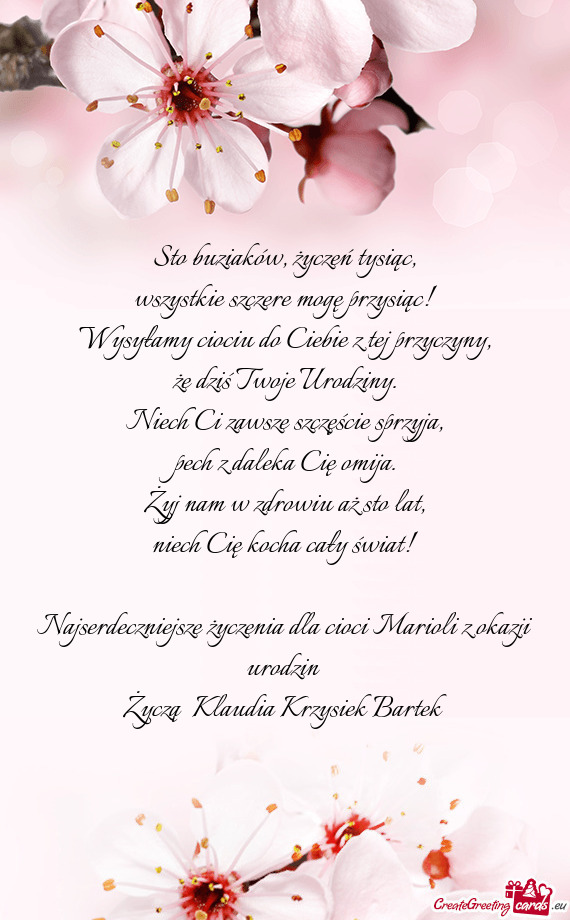 Sto buziaków, życzeń tysiąc,
wszystkie szczere mogę przysiąc!
Wysyłamy ciociu do Ciebie z tej przyczyny,
że dziś Twoje Urodziny.
Niech Ci zawsze szczęście sprzyja,
pech z daleka Cię omija.
Żyj nam w zdrowiu aż sto lat,
niech Cię kocha cały świat!
Najserdeczniejsze życzenia dla cioci Marioli z okazji
urodzin
Życzą Klaudia Krzysiek Bartek
CreateGreeting cards .eu